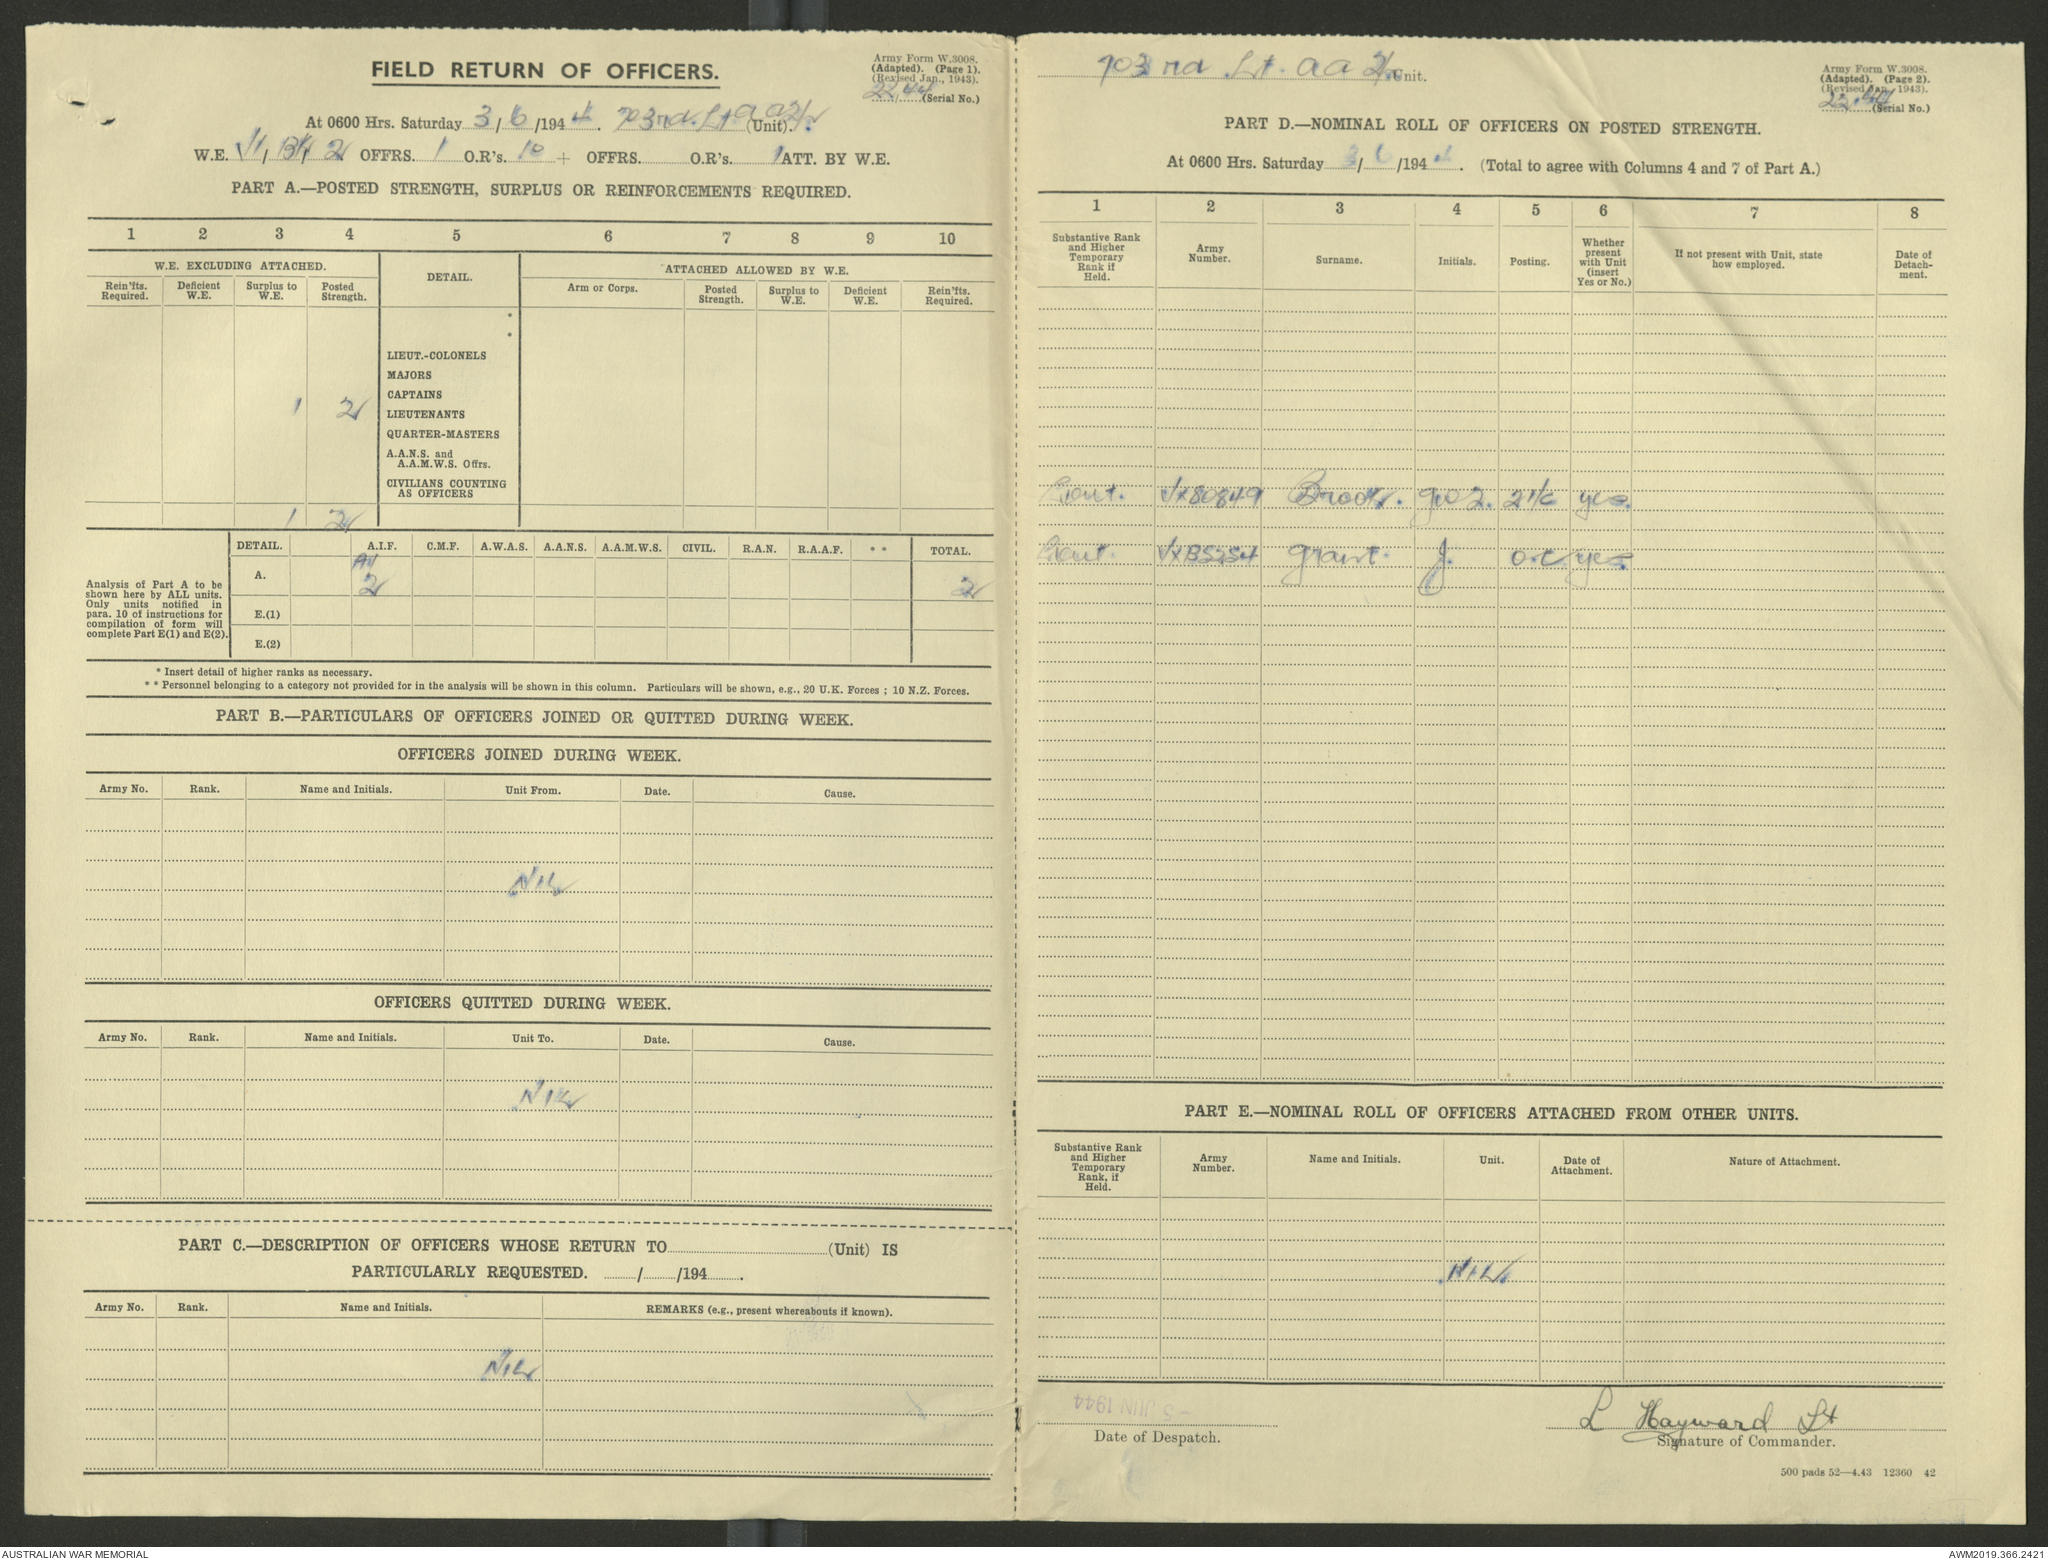 FIELD RETURN OF OFFICERS.
Army Form W.3008.
(Adapted). (Page 1).
(Revised Jan., 1943).
22/44 (Serial No.)
At 0600 Hrs. Saturday 3/6/1944. (Unit).
W.E. OFFRS. 1 O.R's. + OFFRS. O.R's. ATT. BY W.E.
PART A.—POSTED STRENGTH, SURPLUS OR REINFORCEMENTS REQUIRED.
1 2 3 4 5 6 7 8 9 10
W.E. EXCLUDING ATTACHED. DETAIL. ATTACHED ALLOWED BY W.E.
Rein'fts. Required. Deficient W.E. Surplus to W.E. Posted Strength. Arm or Corps. Posted Strength. Surplus to W.E. Deficient W.E. Rein'fts. Required.
*
*
LIEUT.-COLONELS
MAJORS
CAPTAINS
1 2 LIEUTENANTS
QUARTER-MASTERS
A.A.N.S. and
A.A.M.W.S. Offrs.
CIVILIANS COUNTING
AS OFFICERS
1 2
DETAIL. A.I.F. C.M.F. A.W.A.S. A.A.N.S. A.A.M.W.S. CIVIL. R.A.N. R.A.A.F. * * TOTAL.
A. 2 2
E.(1)
E.(2)
Analysis of Part A to be
shown here by ALL units.
Only units notified in
para. 10 of instructions for
compilation of form will
complete Part E(1) and E(2).
* Insert detail of higher ranks as necessary.
* * Personnel belonging to a category not provided for in the analysis will be shown in this column. Particulars will be shown, e.g., 20 U.K. Forces ; 10 N.Z. Forces.
PART B.—PARTICULARS OF OFFICERS JOINED OR QUITTED DURING WEEK.
OFFICERS JOINED DURING WEEK.
Army No. Rank. Name and Initials. Unit From. Date. Cause.
NIL
OFFICERS QUITTED DURING WEEK.
Army No. Rank. Name and Initials. Unit To. Date. Cause.
NIL
PART C.—DESCRIPTION OF OFFICERS WHOSE RETURN TO (Unit) IS
PARTICULARLY REQUESTED. / /194 .
Army No. Rank. Name and Initials. REMARKS (e.g., present whereabouts if known).
NIL
703rd Lt. aa Unit.
Army Form W.3008.
(Adapted). (Page 2).
(Revised Jan., 1943).
22/44 (Serial No.)
PART D.—NOMINAL ROLL OF OFFICERS ON POSTED STRENGTH.
At 0600 Hrs. Saturday 3/6/1944. (Total to agree with Columns 4 and 7 of Part A.)
1 2 3 4 5 6 7 8
Substantive Rank and Higher Temporary Rank if Held. Army Number. Surname. Initials. Posting. Whether present with Unit (insert Yes or No.) If not present with Unit, state how employed. Date of Detach-ment.
Lieut. VX80849 2 i/c yes.
Lieut. Grant. J. O.C. yes.
PART E.—NOMINAL ROLL OF OFFICERS ATTACHED FROM OTHER UNITS.
Substantive Rank and Higher Temporary Rank, if Held. Army Number. Name and Initials. Unit. Date of Attachment. Nature of Attachment.
NIL
-5 JUN 1944
Date of Despatch.
L Hayward Lt
Signature of Commander.
500 pads 52—4.43 12360 42
AUSTRALIAN WAR MEMORIAL
AWM2019.366.2421